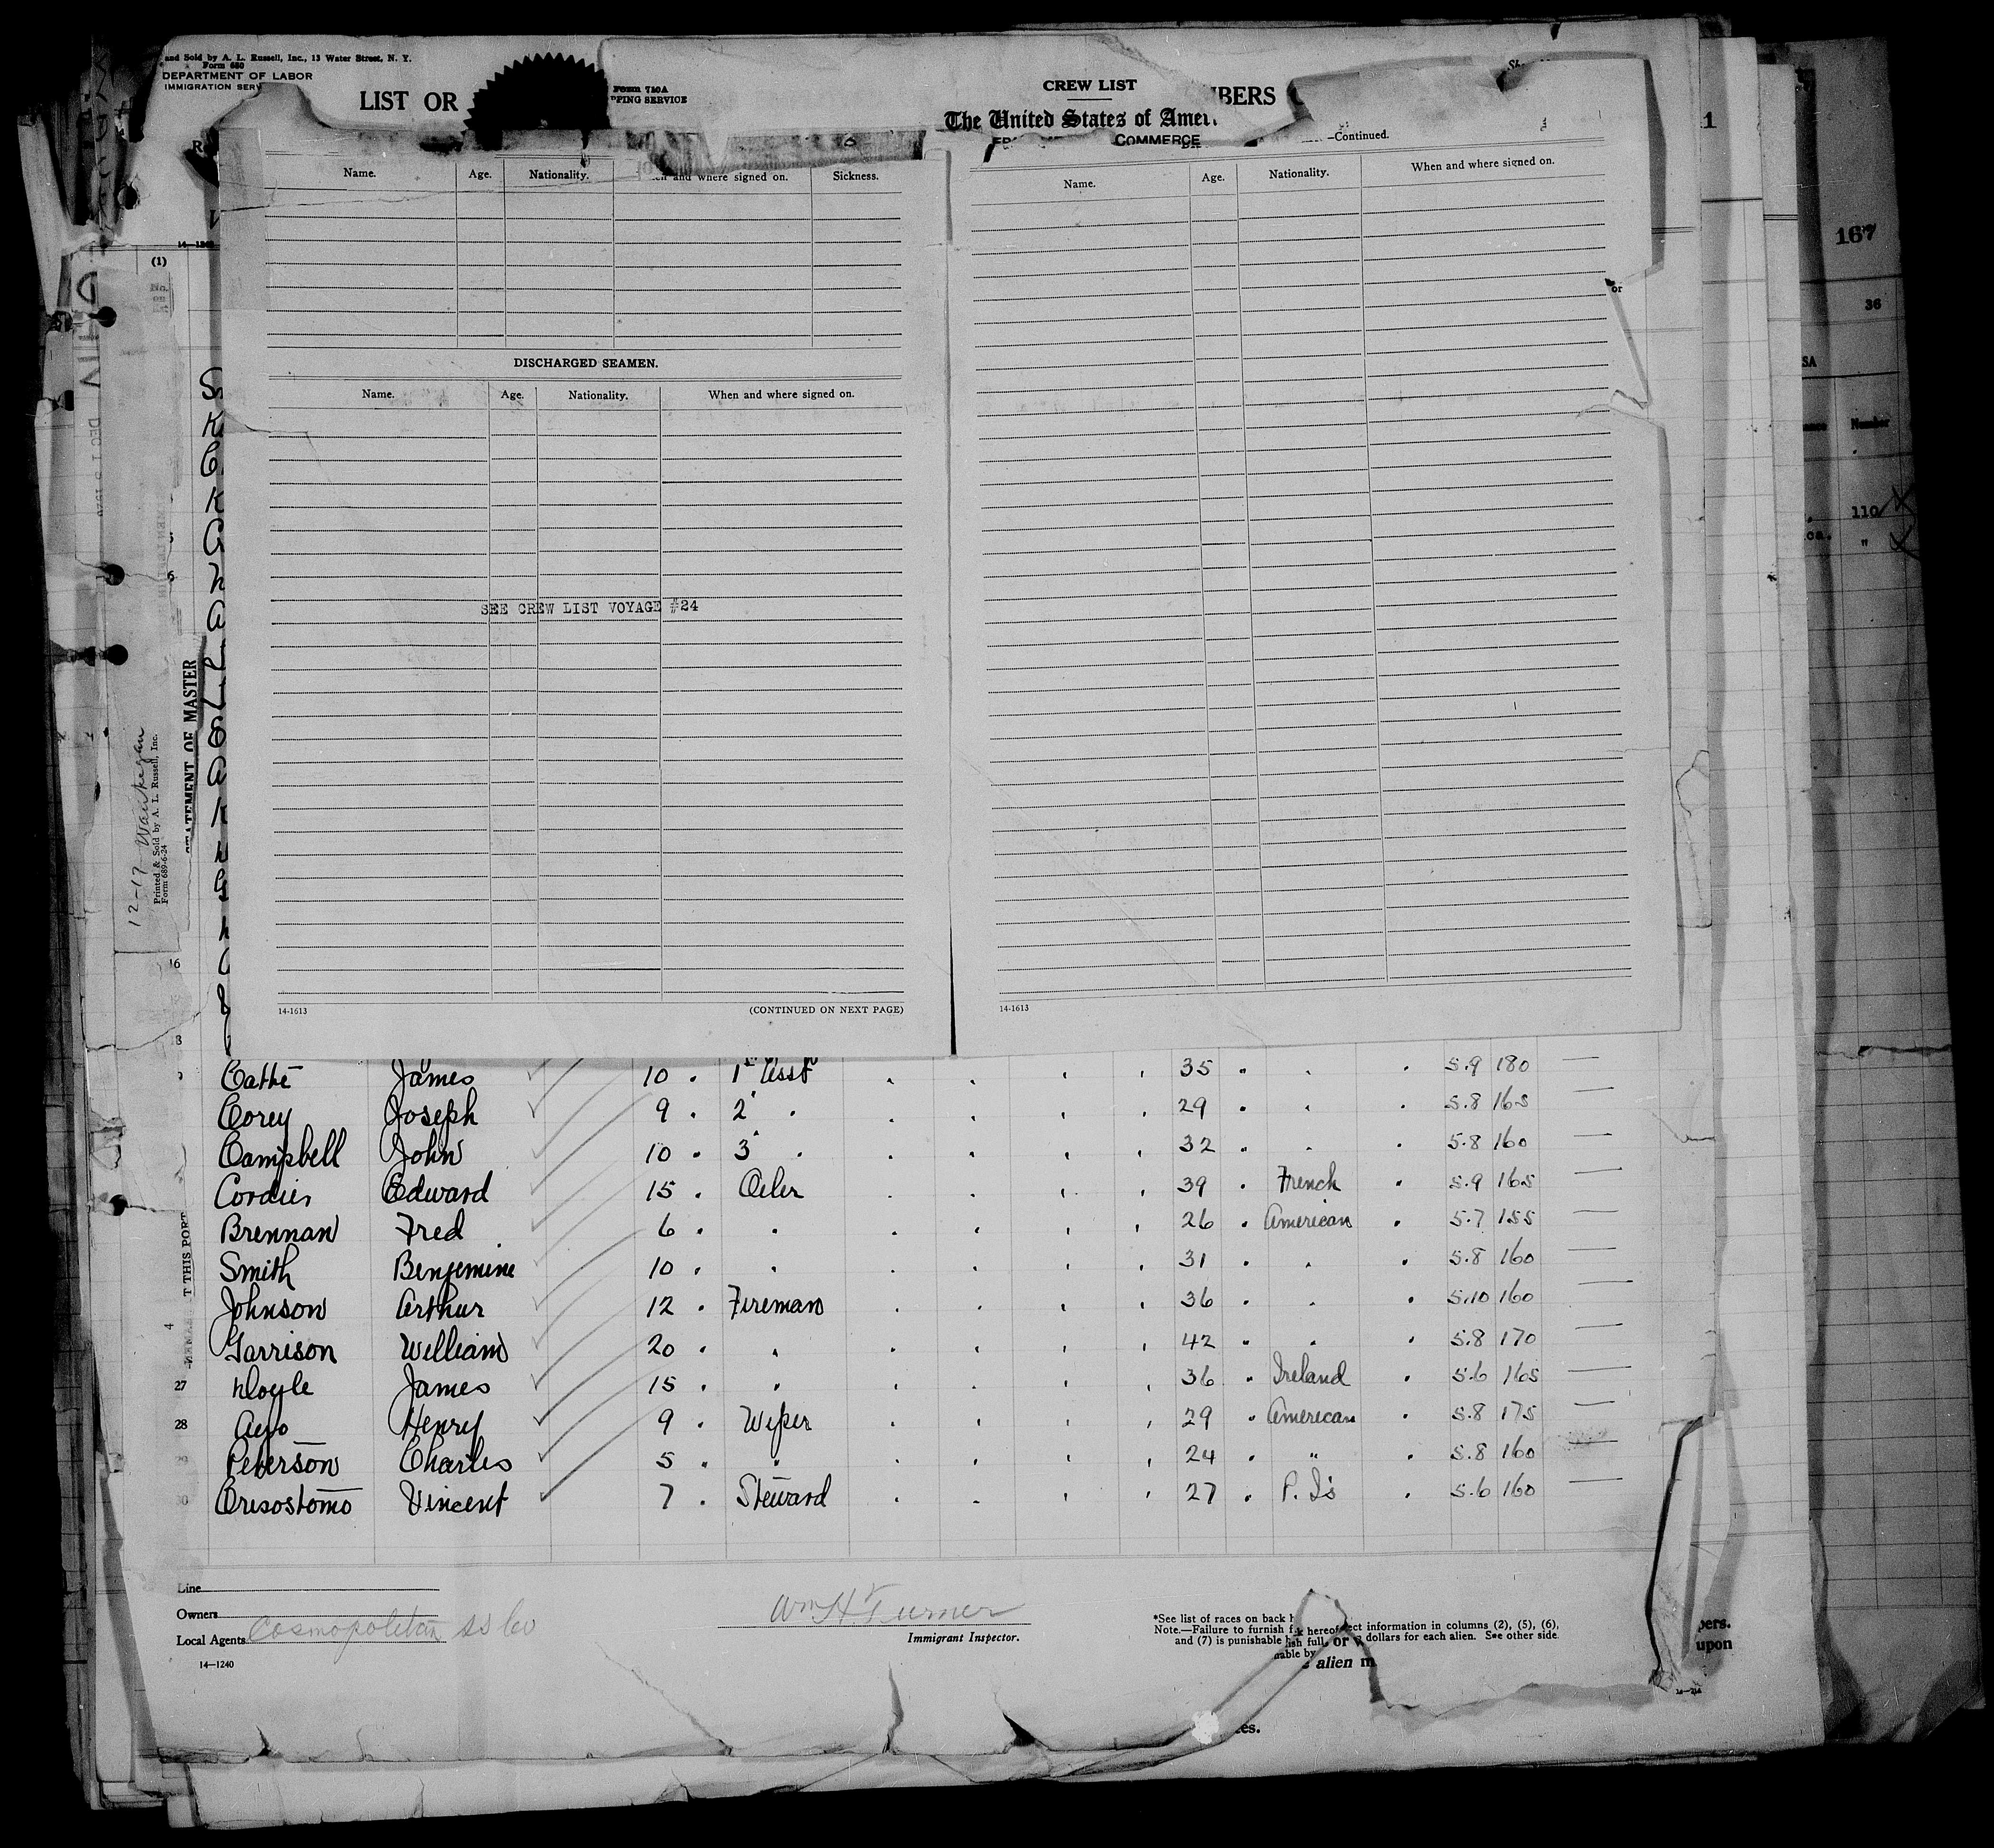 and Sold by A. L. Russell, Inc., 13 Water Street, N. Y.
Form 680
DEPARTMENT OF LABOR
IMMIGRATION SERV
LIST OR
Form 710A
PPING SERVICE
CREW LIST
MBERS
The United States of Amer
COMMERCE
—Continued.
1
167
36
SA
Number
110
ca. "
14-1240
(1)
Name. Age. Nationality. and where signed on. Sickness.
Name. Age. Nationality. When and where signed on.
or
DISCHARGED SEAMEN.
Name. Age. Nationality. When and where signed on.
SEE CREW LIST VOYAGE #24
14-1613 (CONTINUED ON NEXT PAGE)
14-1613
12-17 Waukegan
Printed & Sold by A. L. Russell, Inc.
Form 689-6-24
STATEMENT OF MASTER
T THIS PORT
16
James 10 . 1st Asst 35 5.9 180
Corey Joseph 9 . 2 . 29 5.8 165
Campbell John 10 . 3 . 32 5.8 160
Cordier Edward 15 . Oiler 39 French 5.9 165
Brennan Fred 6 . . 26 American 5.7 155
Smith Benjemine 10 . . 31 5.8 160
Johnson Arthur 12 . Fireman 36 5.10 160
Garrison William 20 . . 42 5.8 170
27 Doyle James 15 . . 36 Ireland 5.6 165
28 Henry 9 . Wiper 29 American 5.8 175
29 Peterson Charles 5 . . 24 " 5.8 160
30 Crisostomo Vincent 7 . Steward 27 P. Is 5.6 160
Line
Owners
Local Agents Cosmopolitan SS Co
14—1240
Wm H Turner
Immigrant Inspector.
*See list of races on back h
Note.—Failure to furnish f k hereof ect information in columns (2), (5), (6),
and (7) is punishable b ish full, or dollars for each alien. See other side.
nable by
alien m
pers.
upon
es.